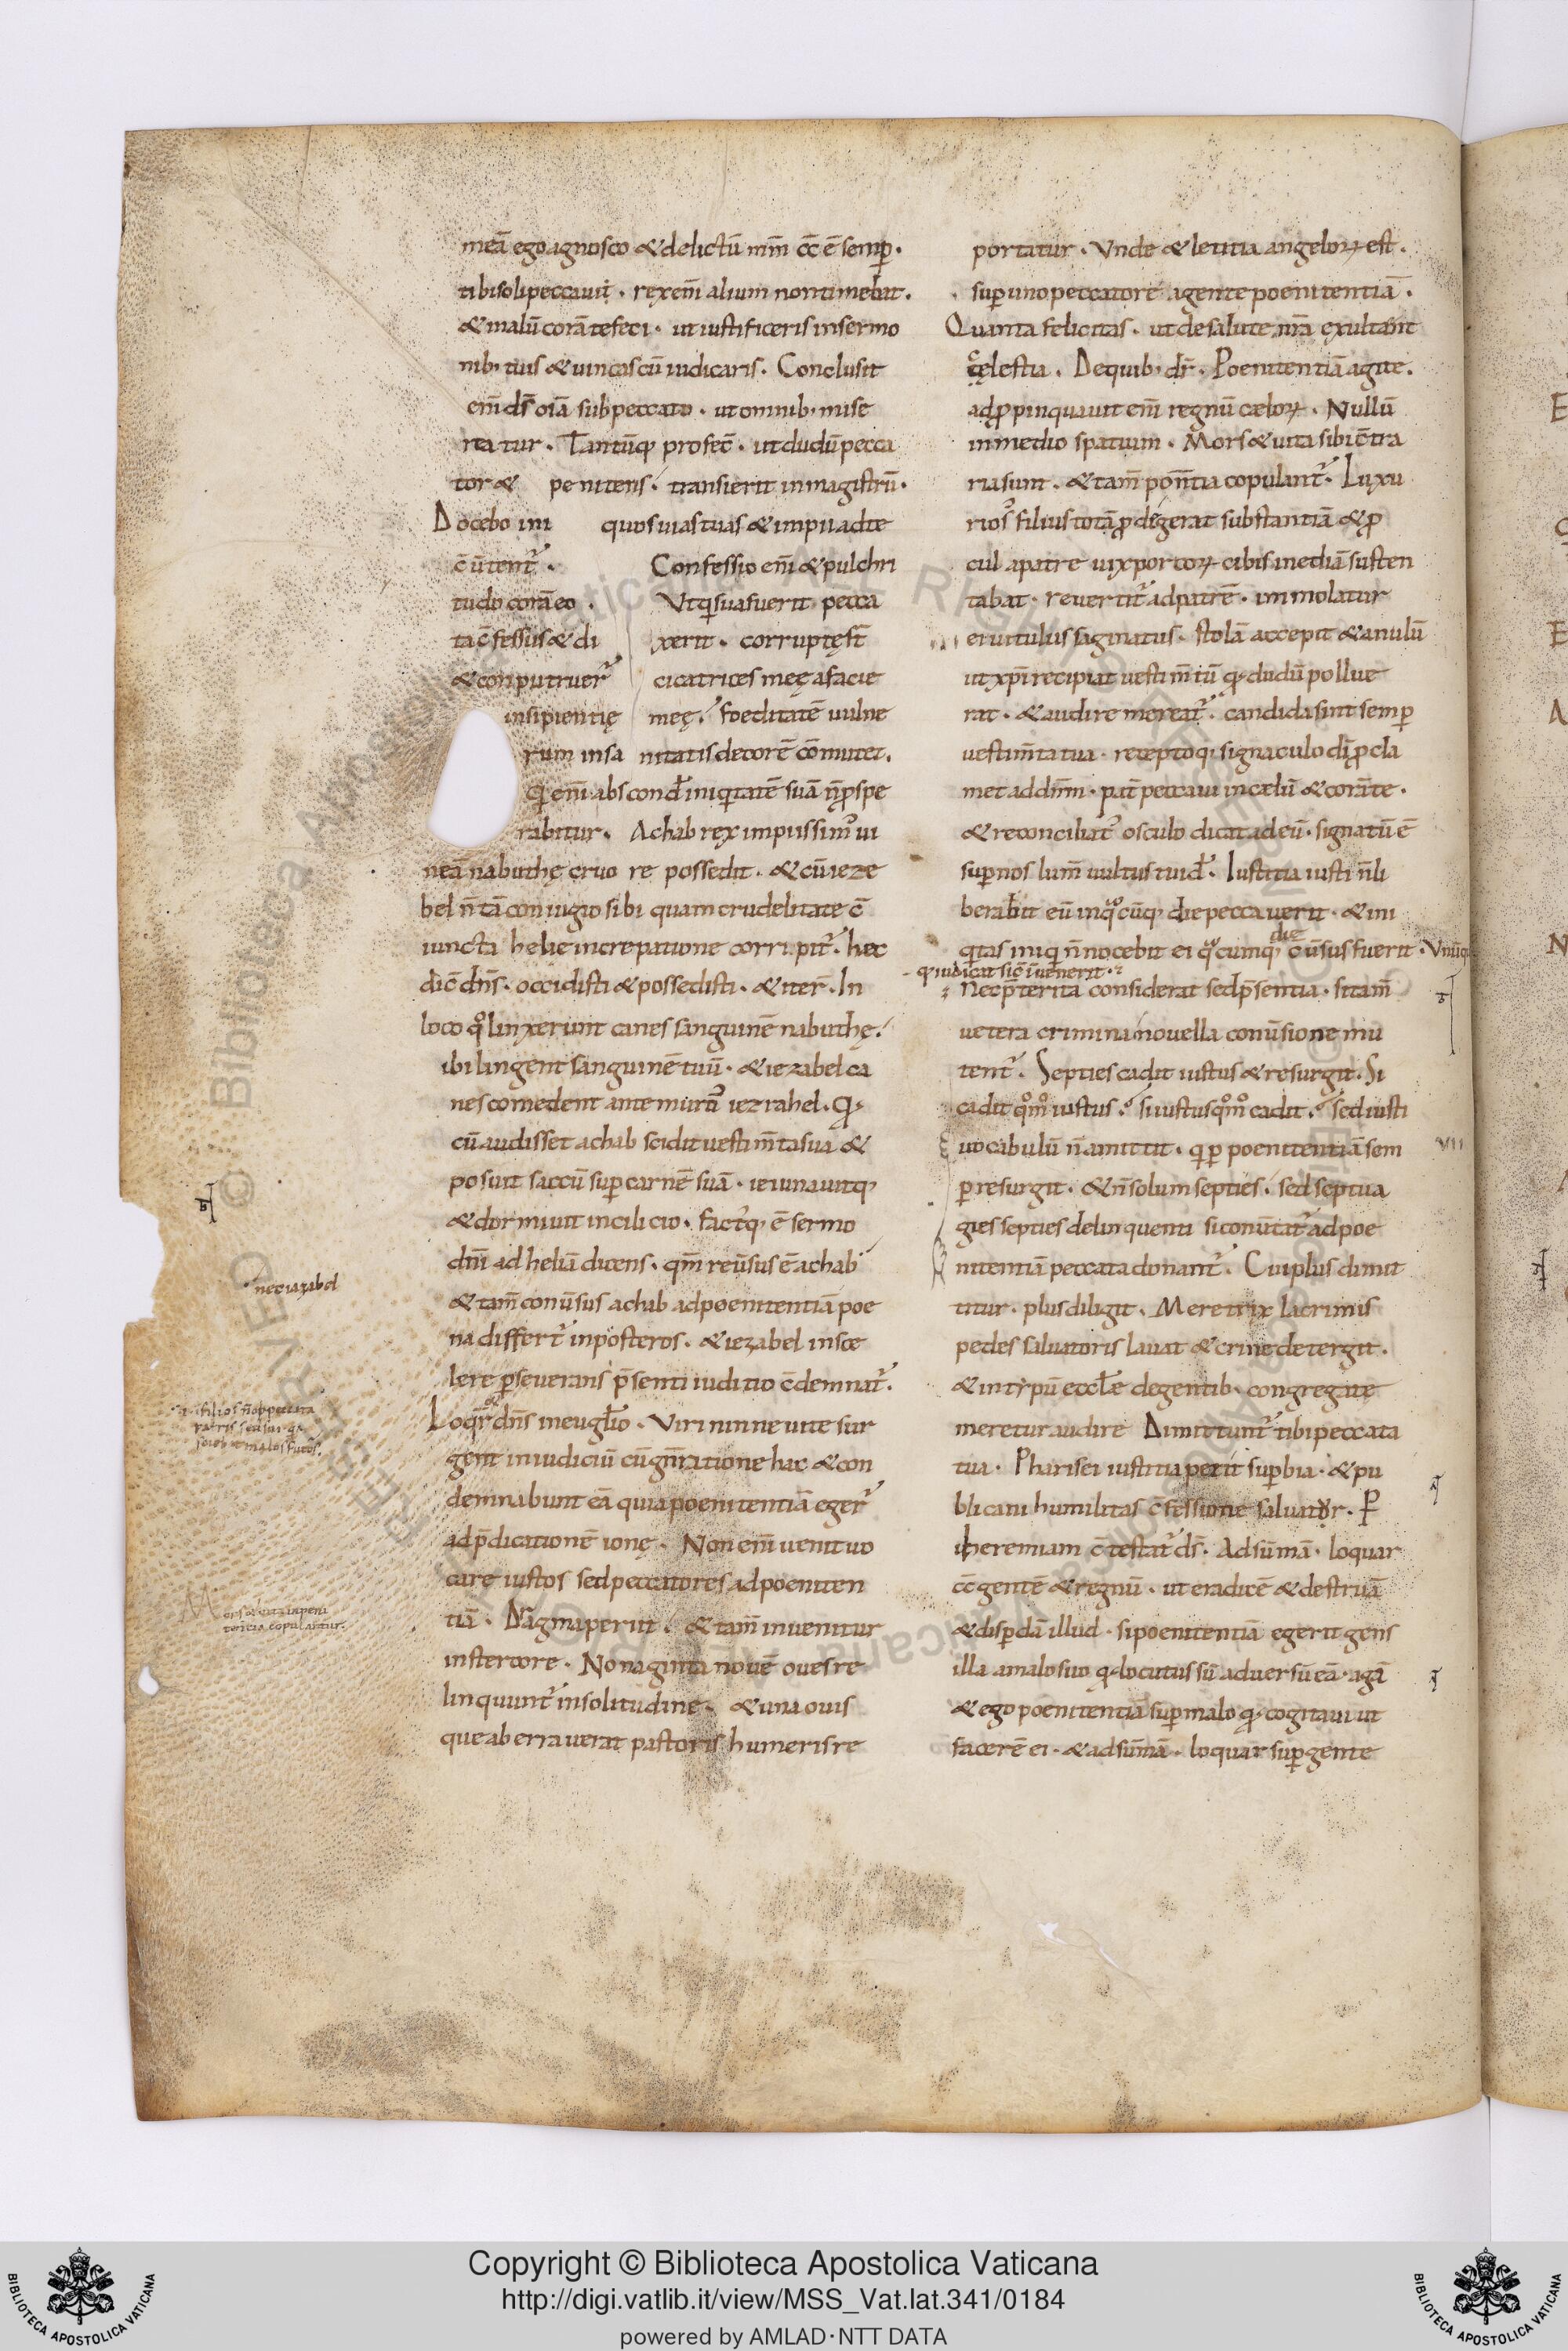 meā ego agnosco & delictū mm̄ cc̄ ē semp̱.
tibi soli peccavi. rex em̄ alium non timebat.
& malū corā te feci. ut iustificeris in sermo
nib; tuis & uincas cū iudicaris. Conclusit
em̄ ds̄ om̄ia sub peccato. ut omnib; mise
reatur. Tantūq; profec̄. ut dudū pecca
tor & penitens. transierit in magistrū.
Docebo ini quos uias tuas & impii ad te
c̄ūtent̄.
Confessio em̄ & pulchri
tudo corā eo. Vt qi sua fuerit pecca
ta c̄fessus & di xerit. corruptę st̄
& conputruer̄ cicatrices meę a facie
insipientię meę. foeditatē uulne
rum in sa nitatis decorē cōmutet.
Qi em̄ abscond̄ iniqitatē suā n̄ ꝓspe
rabitur. Achab rex impiissim' ui
neā nabuthę cruo re possedit. & cū ieza
bel n̄ tā coniugio sibi quam crudelitate c̄
iuncta helie increpatione corripit̄. hec
dic̄ dn̄s. occidisti & possedisti. & iter̄. In
loco qo linxerunt canes sanguinē nabuthę.
ibi lingent sanguinē tuū. & iezabel ca
nes comedent ante murū iezrahel. Qd
cū audisset achab scidit uestim̄ta sua &
posuit saccū sup̱ carnē suā. ieiunauitq;
& dormiuit in cilicio. fact'q; ē sermo
dn̄i ad heliā dicens. qm̄ reūsus ē achab
nec iazabel
& tam̄ conūsus achab ad poenitentiā poe
na differt̄ in posteros. & iezabel in sce
lere p̱seuerans p̄senti iuditio c̄demnat̄.
Loqr̄ dn̄s in euḡlio. Viri niniuite sur
gent in iudiciū cū gn̄ratione hac & con
demnabunt eā quia poenitentiā eger̄
ad p̄dicationē ionę. Non em̄ uenit uo
care iustos sed peccatores ad poeniten
tiā. Dragma periit. & tam̄ inuenitur
in stercore. Nonaginta nouē oues re
linquunt̄ in solitudine. & una ouis
que aberrauerat pastoris humeris re
Mors & uita in peni
tencia copulantur.
portatur. Vnde & letitia angeloꝝ est.
sup̱ uno peccatore agente poenitentiā.
Quanta felicitas. ut de salute nr̄a exultent
cęlestia. De quib; dr̄. Poenitentiā agite.
adꝓpinquauit em̄ regnū cæloꝝ. Nullū
in medio spatium. Mors & uita sibi c̄tra
ria sunt. & tam̄ pn̄itentia copulant̄. Luxu
rios' filius totā ꝓdigerat substantiā & ꝓ
cul a patre uix porcoꝝ cibis inediā susten
tabat. reuertit̄ ad patrē. immolatur
ei uitulus saginatus. stolā accepit & anulū
ut xp̄i recipiat uestim̄tū qd dudū pollue
rat. & audire mereat̄. candida sint semp̱
uestim̄ta tua. receptoq; signaculo di ꝓcla
met ad dm̄. pat̄ peccaui in cælū & corā te.
& reconciliat' osculo dicat ad eū. signatū ē
sup̱ nos lum̄ uultus tui d̄. Iustitia iusti n̄ li
berabit eū in qocūq; die peccauerit. & ini
qitas iniqi n̄ nocebit ei qocumq; die c̄ūsus fuerit. Vnūqē
q; iudicat sic̄ īuenerit.
Nec p̄terita considerat sed p̄sentia. si tam̄
uetera crimina nouella conūsione mu
tent̄. Septies cadit iustus & resurgit. Si
cadit qomo iustus. si iustus qomo cadit. sed iusti
uocabulū n̄ amittit. qi p̱ poenitentiā sem
p̱ resurgit. & n̄ solum septies. sed septua
gies septies delinquenti si conūtat̄ ad poe
nitentiā peccata donant̄. Cui plus dimit
titur. plus diligit. Meretrix lacrimis
pedes saluatoris lauat & crine detergit.
& in typū eccl̄e de gentib; congregatę
meretur audire Dimittunt̄ tibi peccata
tua. Pharisei iustitia perit sup̱bia. & pu
blicani humilitas c̄fessione saluator. P̱
iheremiam c̄testat̄ ds̄. Ad sūmā. loquar
cc̄ gentē & regnū. ut eradicē & destruā
& disp̱dā illud. si poenitentiā egerit gens
illa a malo suo qd locutus sū aduersū eā. agā
& ego poenitentiā sup̱ malo qd cogitaui ut
facerē ei. & ad sūmā. loquar sup̱ gente
VII
Copyright © Biblioteca Apostolica Vaticana
http://digi.vatlib.it/view/MSS_Vat.lat.341/0184
powered by AMLAD·NTT DATA
BIBLIOTECA APOSTOLICA VATICANA
BIBLIOTECA APOSTOLICA VATICANA